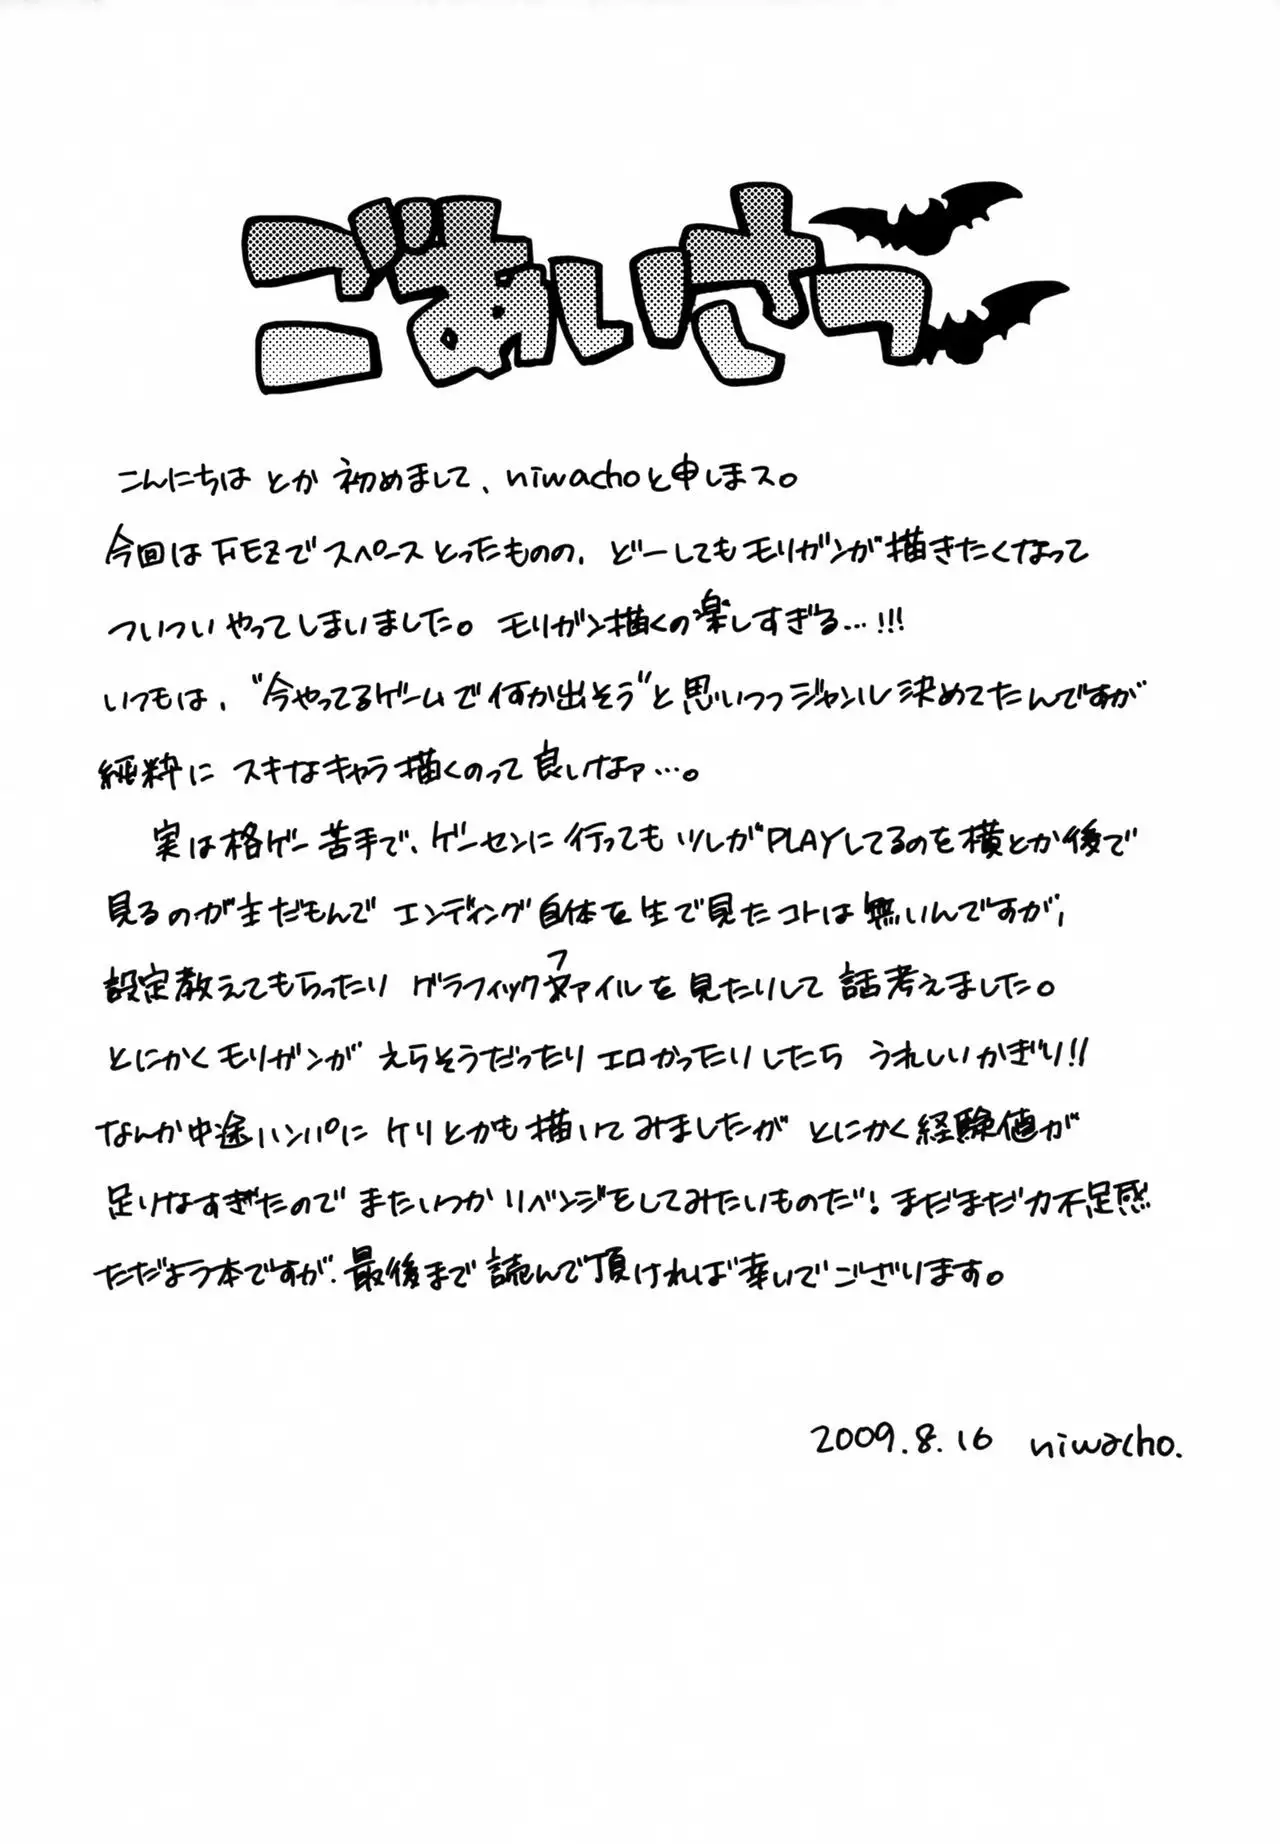 ごあいさつ
こんにちは とか 初めまして、niwachoと申しまス。
今回は FEZで スペースとったものの、どーしてもモリガンが描きたくなって
ついついやってしまいました。モリガン描くの楽しすぎる…!!!
いつもは、"今やってるゲームで何か出そう"と思いつつジャンル決めてたんですが
純粋に スキなキャラ描くのって良いなァ…。
実は格ゲー苦手で、ゲーセンに行ってもツレがPLAYしてるのを横とか後で
見るのが主だもんで エンディング自体を生で見たコトは無いんですが、
設定教えてもらったり グラフィックファイルを見たりして 話考えました。
とにかくモリガンが えらそうだったり エロかったりしたら うれしいかぎり!!
なんか中途ハンパに ケリとかも描いてみましたが とにかく経験値が
足りなすぎたので またいつか リベンジをしてみたいものだ! まだまだ力不足感
ただよう本ですが、最後まで 読んで頂ければ幸いでございます。
2009.8.16 niwacho.